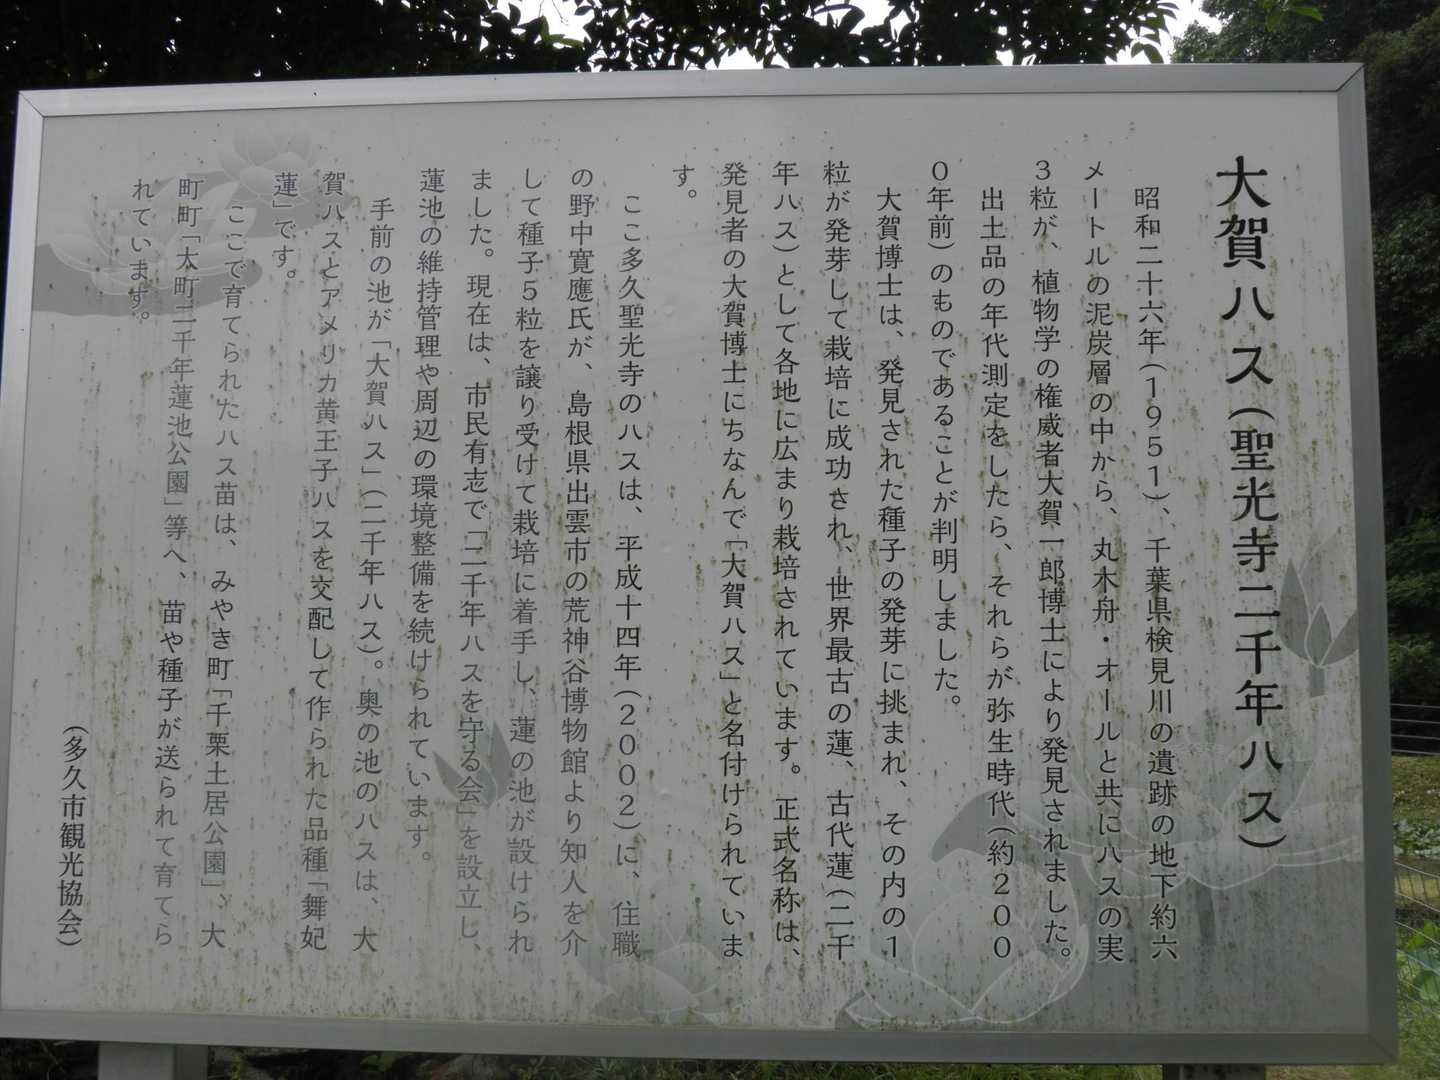 大賀ハス(聖光寺二千年ハス)
昭和二十六年(1951)、千葉県検見川の遺跡の地下約六
メートルの泥炭層の中から、丸木舟・オールと共にハスの実
3粒が、植物学の権威者大賀一郎博士により発見されました。
出土品の年代測定をしたら、それらが弥生時代(約200
0年前)のものであることが判明しました。
大賀博士は、発見された種子の発芽に挑まれ、その内の1
粒が発芽して栽培に成功され、世界最古の蓮、古代蓮(二千
年ハス)として各地に広まり栽培されています。正式名称は、
発見者の大賀博士にちなんで「大賀ハス」と名付けられていま
す。
ここ多久聖光寺のハスは、平成十四年(2002)に、住職
の野中寛應氏が、島根県出雲市の荒神谷博物館より知人を介
して種子5粒を譲り受けて栽培に着手し、蓮の池が設けられ
ました。現在は、市民有志で「二千年ハスを守る会」を設立し、
蓮池の維持管理や周辺の環境整備を続けられています。
手前の池が「大賀ハス」(二千年ハス)。奥の池のハスは、大
賀ハスとアメリカ黄王子ハスを交配して作られた品種「舞妃
蓮」です。
ここで育てられたハス苗は、みやき町「千栗土居公園」、大
町町「大町二千年蓮池公園」等へ、苗や種子が送られて育てら
れています。
(多久市観光協会)